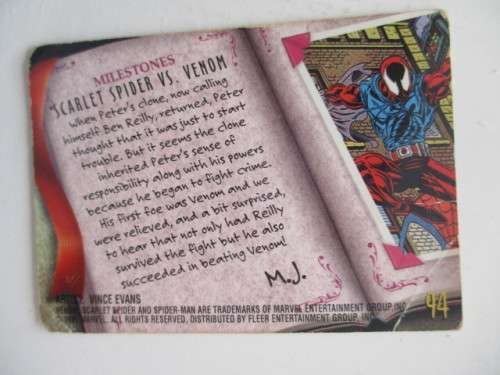 MILESTONES
SCARLET SPIDER VS. VENOM
When Peter's clone, now calling
himself Ben Reilly, returned, Peter
thought that it was just to start
trouble. But it seems the clone
inherited Peter's sense of
responsibility along with his powers
because he began to fight crime.
His first foe was Venom and we
were relieved, and a bit surprised,
to hear that not only had Reilly
survived the fight but he also
succeeded in beating Venom!
M.J.
ARTIST: VINCE EVANS
VENOM, SCARLET SPIDER AND SPIDER-MAN ARE TRADEMARKS OF MARVEL ENTERTAINMENT GROUP, INC.
MARVEL. ALL RIGHTS RESERVED, DISTRIBUTED BY FLEER ENTERTAINMENT GROUP, INC.
94